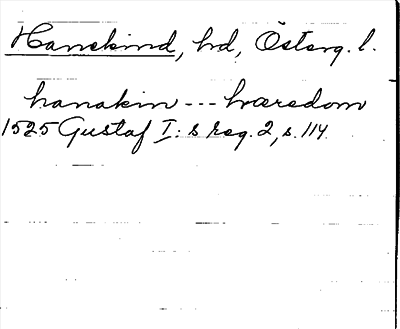 Hanekind, hd, Österg. l.
hanakin --- hværsdom
1525 Gustaf I: s reg. 2, s. 114.